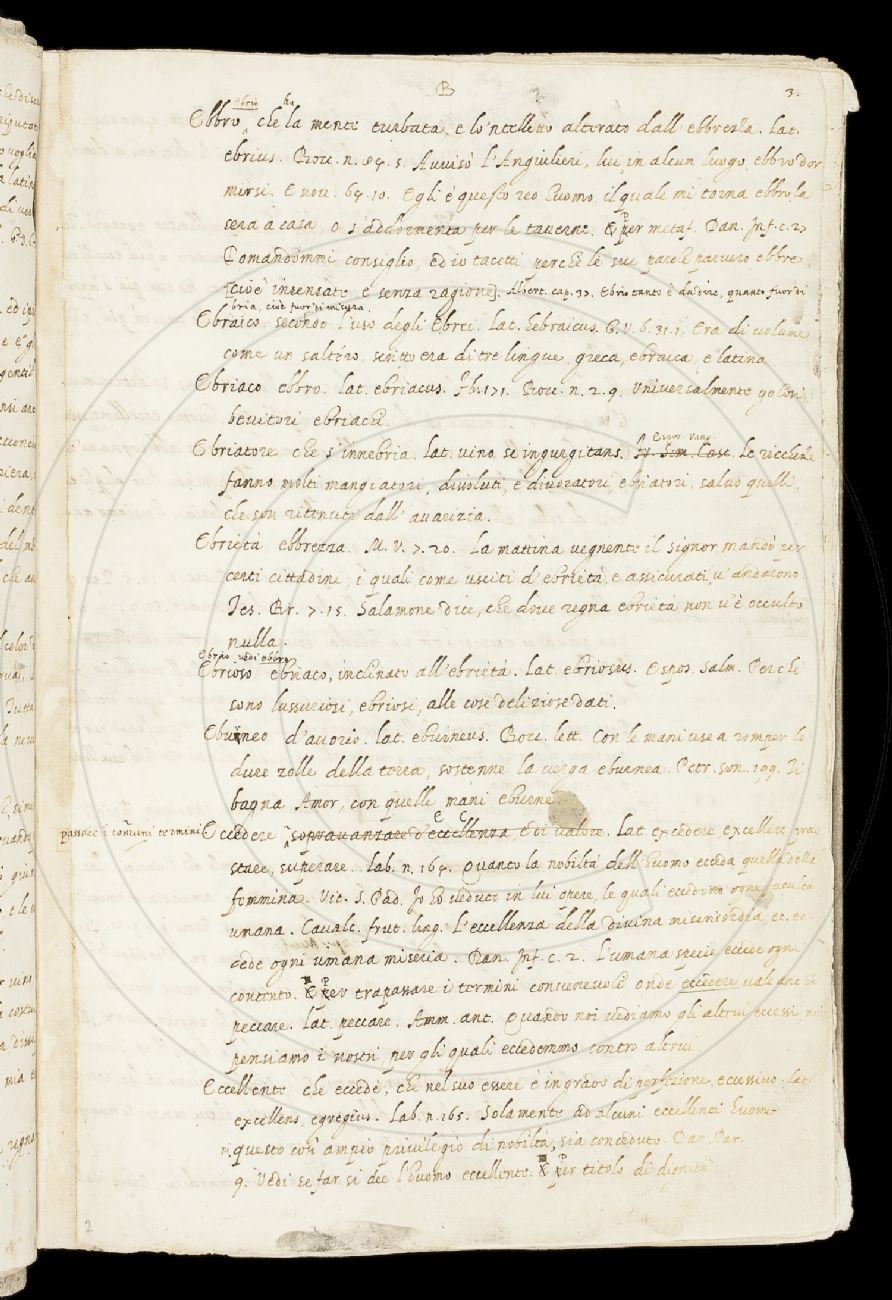 B
3.
Ebbro, ebrio che ha la mente turbata, e lo 'ntelletto alterato dall' ebbrezza. Lat.
ebrius. Bocc. n. 84. 5. Avvisò l'Angiulieri, lui in alcun luogo ebbro dor
mirsi. E nov. 64. 10. Egli è questo reo huomo, il quale mi torna ebbro la
sera a casa, o s'addormenta per le taverne. & Per metaf. Dan. Inf. c. 27
Domandommi consiglio, ed io tacetti, perche le sue parole parvero ebbre
[cioè insensate e senza ragione]. Albert. cap. 37. Ebrio tanto è da dire, quanto fuor di
bria, cioè fuor di misura.
Ebraico. secondo l'uso degli Ebrei. Lat. hebraicus. G. V. 6. 31. 1. Era di volume
come un saltéro, scritto era di tre lingue, greca, ebraica, e latina
Ebriaco ebbro. lat. ebriacus. Bocc. n. 2. 9. Universalmente golosi
bevitori ebriachi.
Ebriatore che s'innebria. Lat. vino se ingurgitans. Espos. Vang. Le ricchezze
fanno molti mangiatori, dissoluti, e divoratori, ebriatori, salvo quelli,
che son ritenuti dall' avarizia.
Ebrietà ebbrezza. M. V. 7. 20. La mattina vegnente il signor mandò per
certi cittadini, i quali come usciti d'ebrietà, e assicurati, v'andarono
Tes. Br. 7. 15. Salamone dice, che dove regna ebrietà non v'è occulto
nulla.
Ebrio vedi ebbro
Ebrioso ebriaco, inclinato all'ebrietà. Lat. ebriosus. Espos. Salm. Perchè
sono lussuriosi, ebriosi, alle cose deliziose dati.
Eburneo d'avorio. lat. eburneus. Bocc. lett. Con le mani use a romper le
dure zolle della terra, sostenne la verga eburnea. Petr. son. 199. Di
bagna Amor, con quelle mani eburne
passare i comuni termini Eccedere sopravanzare d'eccellenza, e di valore. Lat. excedere, excellere, prae
stare, superare. Lab. n. 164. Quanto la nobiltà dell'huomo ecceda quella della
femmina. Vit. S. Pad. Io hò veduto in lui opere, le quali eccedono ogni facultà
umana. Cavalc. frut. ling. L'eccellenza della divina misericordia, ec. ec-
cede ogni umana miseria. Dan. Inf. c. 2. L'umana spezie eccede ogni
contento. & Per trapassare i termini convenevoli onde eccedere vale anche
peccare. Lat. peccare. Amm. ant. Quando noi vediamo gli altrui eccessi, noi
pensiamo i nostri, per gli quali eccedemmo contro altrui
Eccellente che eccede, che nel suo essere è in grado di perfezione, eccessivo. Lat.
excellens, egregius. Lab. n. 165. Solamente ad alcuni eccellenti huomi-
ni questo così ampio privilegio di nobiltà, sia conceduto. Dan. Par.
9. Vedi se far si dee l'huomo eccellente. & Per titolo di dignità
2